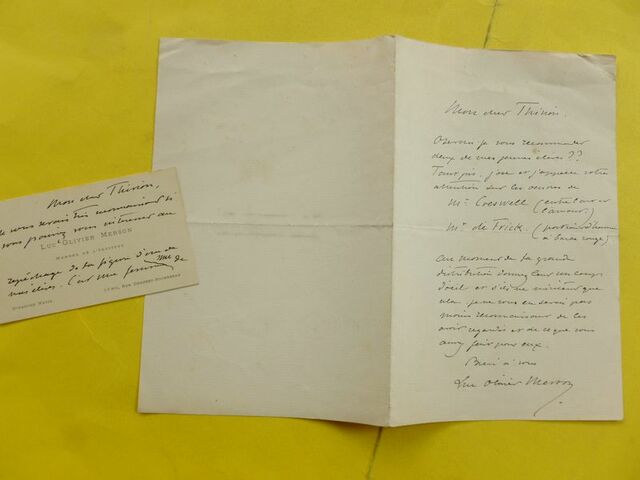 Mon cher Thirion,
je vous serais très reconnaissant si
vous pouviez vous intéresser au
LUC-OLIVIER MERSON
MEMBRE DE L'INSTITUT
repêchage de la figure d'une de
mes élèves. C'est une femme
Mon cher Thirion.
Oserais-je vous recommander
deux de mes jeunes élèves ??
Tant pis. j'ose et j'appelle votre
attention sur les œuvres de
Mr Creswell (entre l'art et
l'amour)
Mr de Frick. (portrait d'homme
à barbe rouge)
Au moment de la grande
distribution donnez leur un coup
d'œil et s'ils ne méritent que
cela je ne vous en serai pas
moins reconnaissant de les
avoir regardés et de ce que vous
aurez fait pour eux.
Bien à vous
Luc Olivier Merson